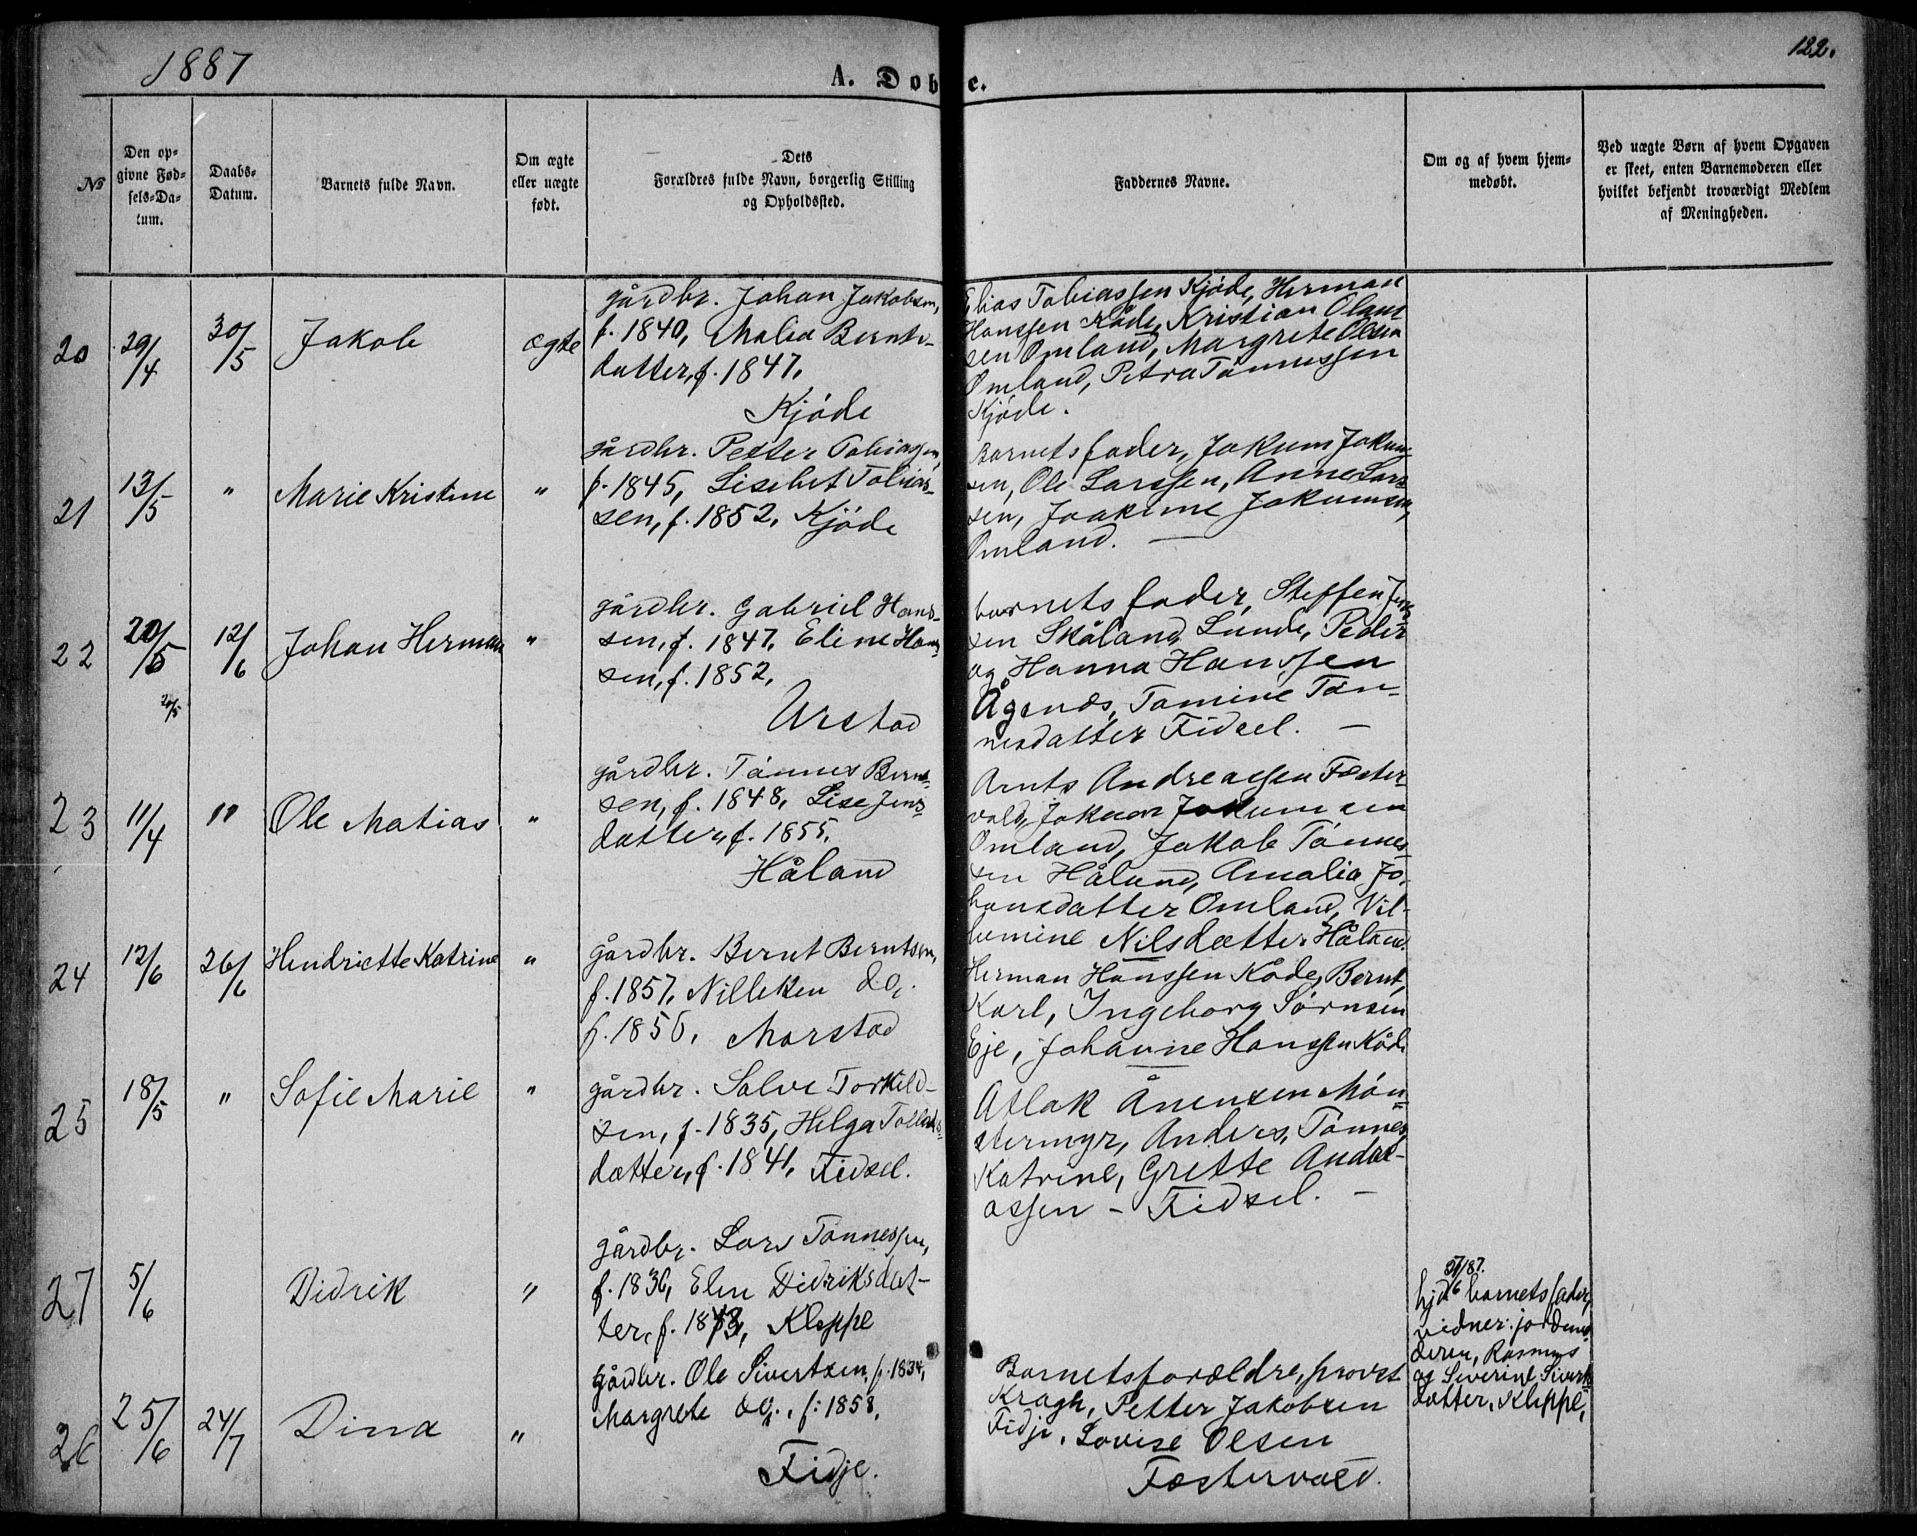 1887
122.
A. Døbte.
No
Den op-
givne Fød-
sels-Da-
tum.
Daabs-
Datum.
Barnets fulde Navn.
Om ægte
eller uægte
født.
Dets
Forældres fulde Navn, borgerlig Stilling
og Opholdssted.
Faddernes Navne.
Om og af hvem hjem-
medøbt.
Ved uægte Børn af hvem Opgaven
er skeet, enten Barnemoderen eller
hvilket bekjendt troværdigt Medlem
af Menigheden.
20 29/4 30/5 Jakob ægte
gårdbr. Johan Jakobsen,
f. 1840, Malea Bernts-
datter, f. 1847,
Kjöde
Elias Tobiassen Kjöde, Herman
Hanssen Kåde, Kristian Olaus
sen Omland, Margrete Olsen
Omland, Petra Tönnessen
Kjöde.
21 13/5 " Marie Kristine "
gårdbr. Petter Tobiassen,
f. 1845, Lisebet Tobias-
sen, f. 1852, Kjöde
Barnets fader, Jokum Jokum-
sen, Ole Larssen, Anne Lars-
sen, Joakime Jokumsen,
Omland. —
22 20/5 12/6 Johan Herman "
20/5
gårdbr. Gabriel Hans-
sen, f. 1847, Eline Han-
sen, f. 1852,
Urstad
barnets fader, Steffen
sen Skåland, Lunde, Peder
og Hanna Hanssen
Ågenæs, Tomine Tön-
nesdatter Fidsel. —
23 11/4 " Ole Matias "
gårdbr. Tönnes Bernt-
sen, f. 1848, Lise Jens-
datter, f. 1855,
Håland
Arnts Andreassen Foster-
vold, Jokum Jokumsen
Omland, Jakob Tönnes-
sen Håland, Amalia Jo-
hansdatter Omland, Vil-
humine Nilsdatter Håland.
24 12/6 26/6 Hendriette Katrine "
gårdbr. Bernt Berntsen,
f. 1857, Nilleken do.
f. 1856, Morstad
Herman Hanssen Kåde, Bernt,
Karl, Ingeborg Sörnsen
Eje, Johanne Hanssen Kåde
25 18/5 " Sofie Marie "
gårdbr. Salve Torkild-
sen, f. 1835, Helga Tollaks-
datter, f. 1841, Fidsel.
Aslak Ånensen Mön-
stermyr, Anders, Tönnes,
Katrine, Grette Andre-
assen – Fidsel. —
27 5/6 Didrik "
gårdbr. Lars Tönnessen,
f. 1836, Elen Didriksdat-
ter, f. 1843, Kleppe
hjd 5/6 87. barnets fader,
vidner: jordemo-
deren, Rasmus
og Severine Siverts-
datter, Kleppe,
26 25/6 24/7 Dina "
gårdbr. Ole Sivertsen, f. 1834,
Margrete do., f. 1858,
Fidje.
Barnets forældre, provst
Kragh, Petter Jakobsen
Fidje, Lovise Olsen
Fostervold.